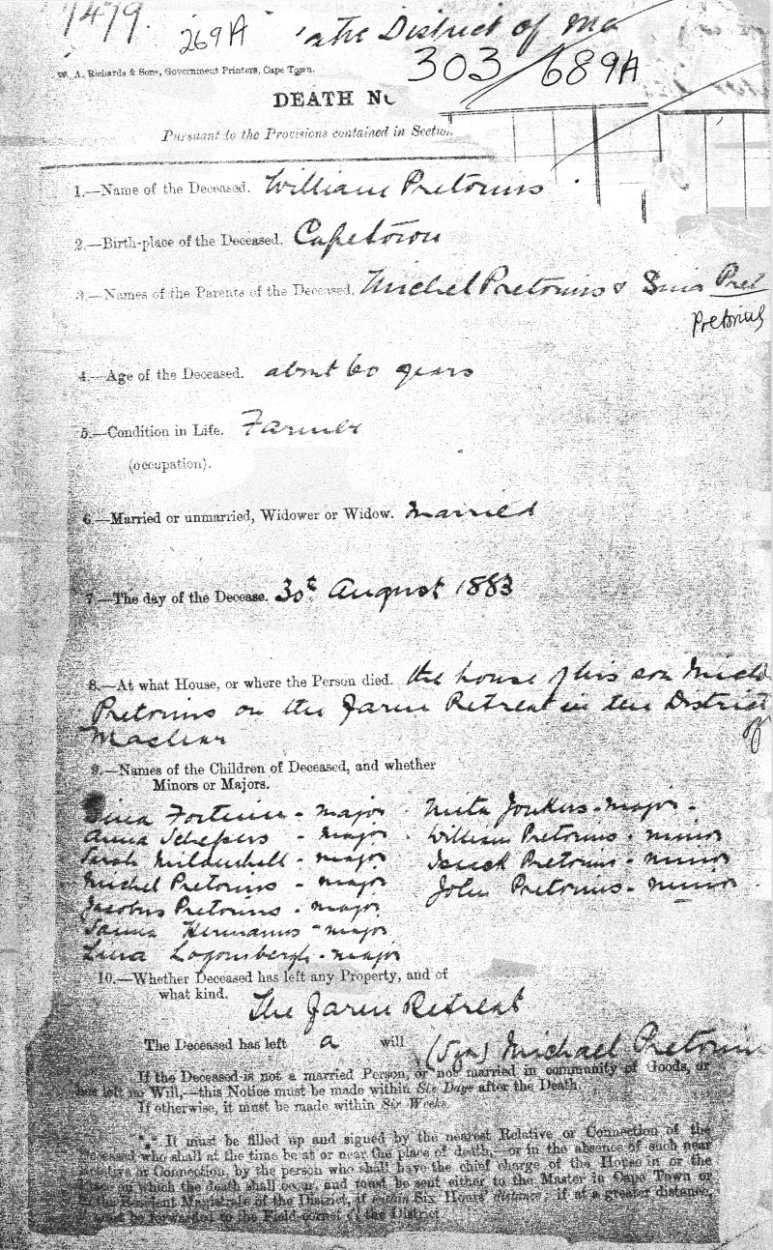 1479.
269A
in the District of Ma
303/689A
W. A. Richards & Sons, Government Printers, Cape Town.
DEATH N
Pursuant to the Provisions contained in Section
1.—Name of the Deceased. William Pretorius
2.—Birth-place of the Deceased. Capetown
3.—Names of the Parents of the Deceased. Michel Pretorius & Sina Pret
Pretorius
4.—Age of the Deceased. about 60 years
5.—Condition in Life. Farmer
(occupation).
6.—Married or unmarried, Widower or Widow. Married
7.—The day of the Decease. 30t August 1883
8.—At what House, or where the Person died. the house of his son Michl
Pretorius on the Farm Retreat in the District
of
Maclear
9.—Names of the Children of Deceased, and whether
Minors or Majors.
Sina - major . Jonkers - major -
Anna Schepers - major . William Pretorius . minor
Sarah Mildenhall - major Isaack Pretorius - minor
Michel Pretorius - major John Pretorius - minor .
Jacobus Pretorius . major
Sanna Hermanus - major
Lina - major
10.—Whether Deceased has left any Property, and of
what kind.
The Farm Retreat
The Deceased has left a will
(Sgn) Michael Pretorius
If the Deceased is not a married Person, or not married in community of Goods, or
has left no Will,—this Notice must be made within Six Days after the Death.
If otherwise, it must be made within Six Weeks.
*** It must be filled up and signed by the nearest Relative or Connection of the
Deceased who shall at the time be at or near the place of death,—or in the absence of such near
Relative or Connection, by the person who shall have the chief charge of the House in or the
Place on which the death shall occur, and must be sent either to the Master in Cape Town or
to the Resident Magistrate of the District, if within Six Hours' distance; if at a greater distance,
must be forwarded to the Field-cornet of the District